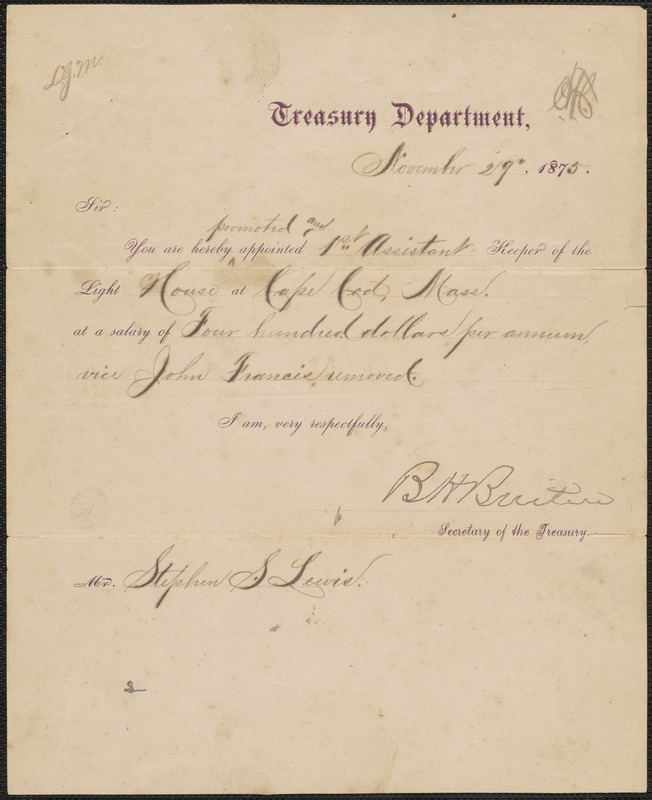 L.G.M.
Treasury Department,
November 29", 1875.
Sir:
promoted and
You are hereby ^ appointed 1st Assistant Keeper of the
Light House at Cape Cod, Mass.
at a salary of Four hundred dollars per annum,
vice John Francis removed.
I am, very respectfully,
B H Bristow
Secretary of the Treasury.
Mr. Stephen S Lewis.